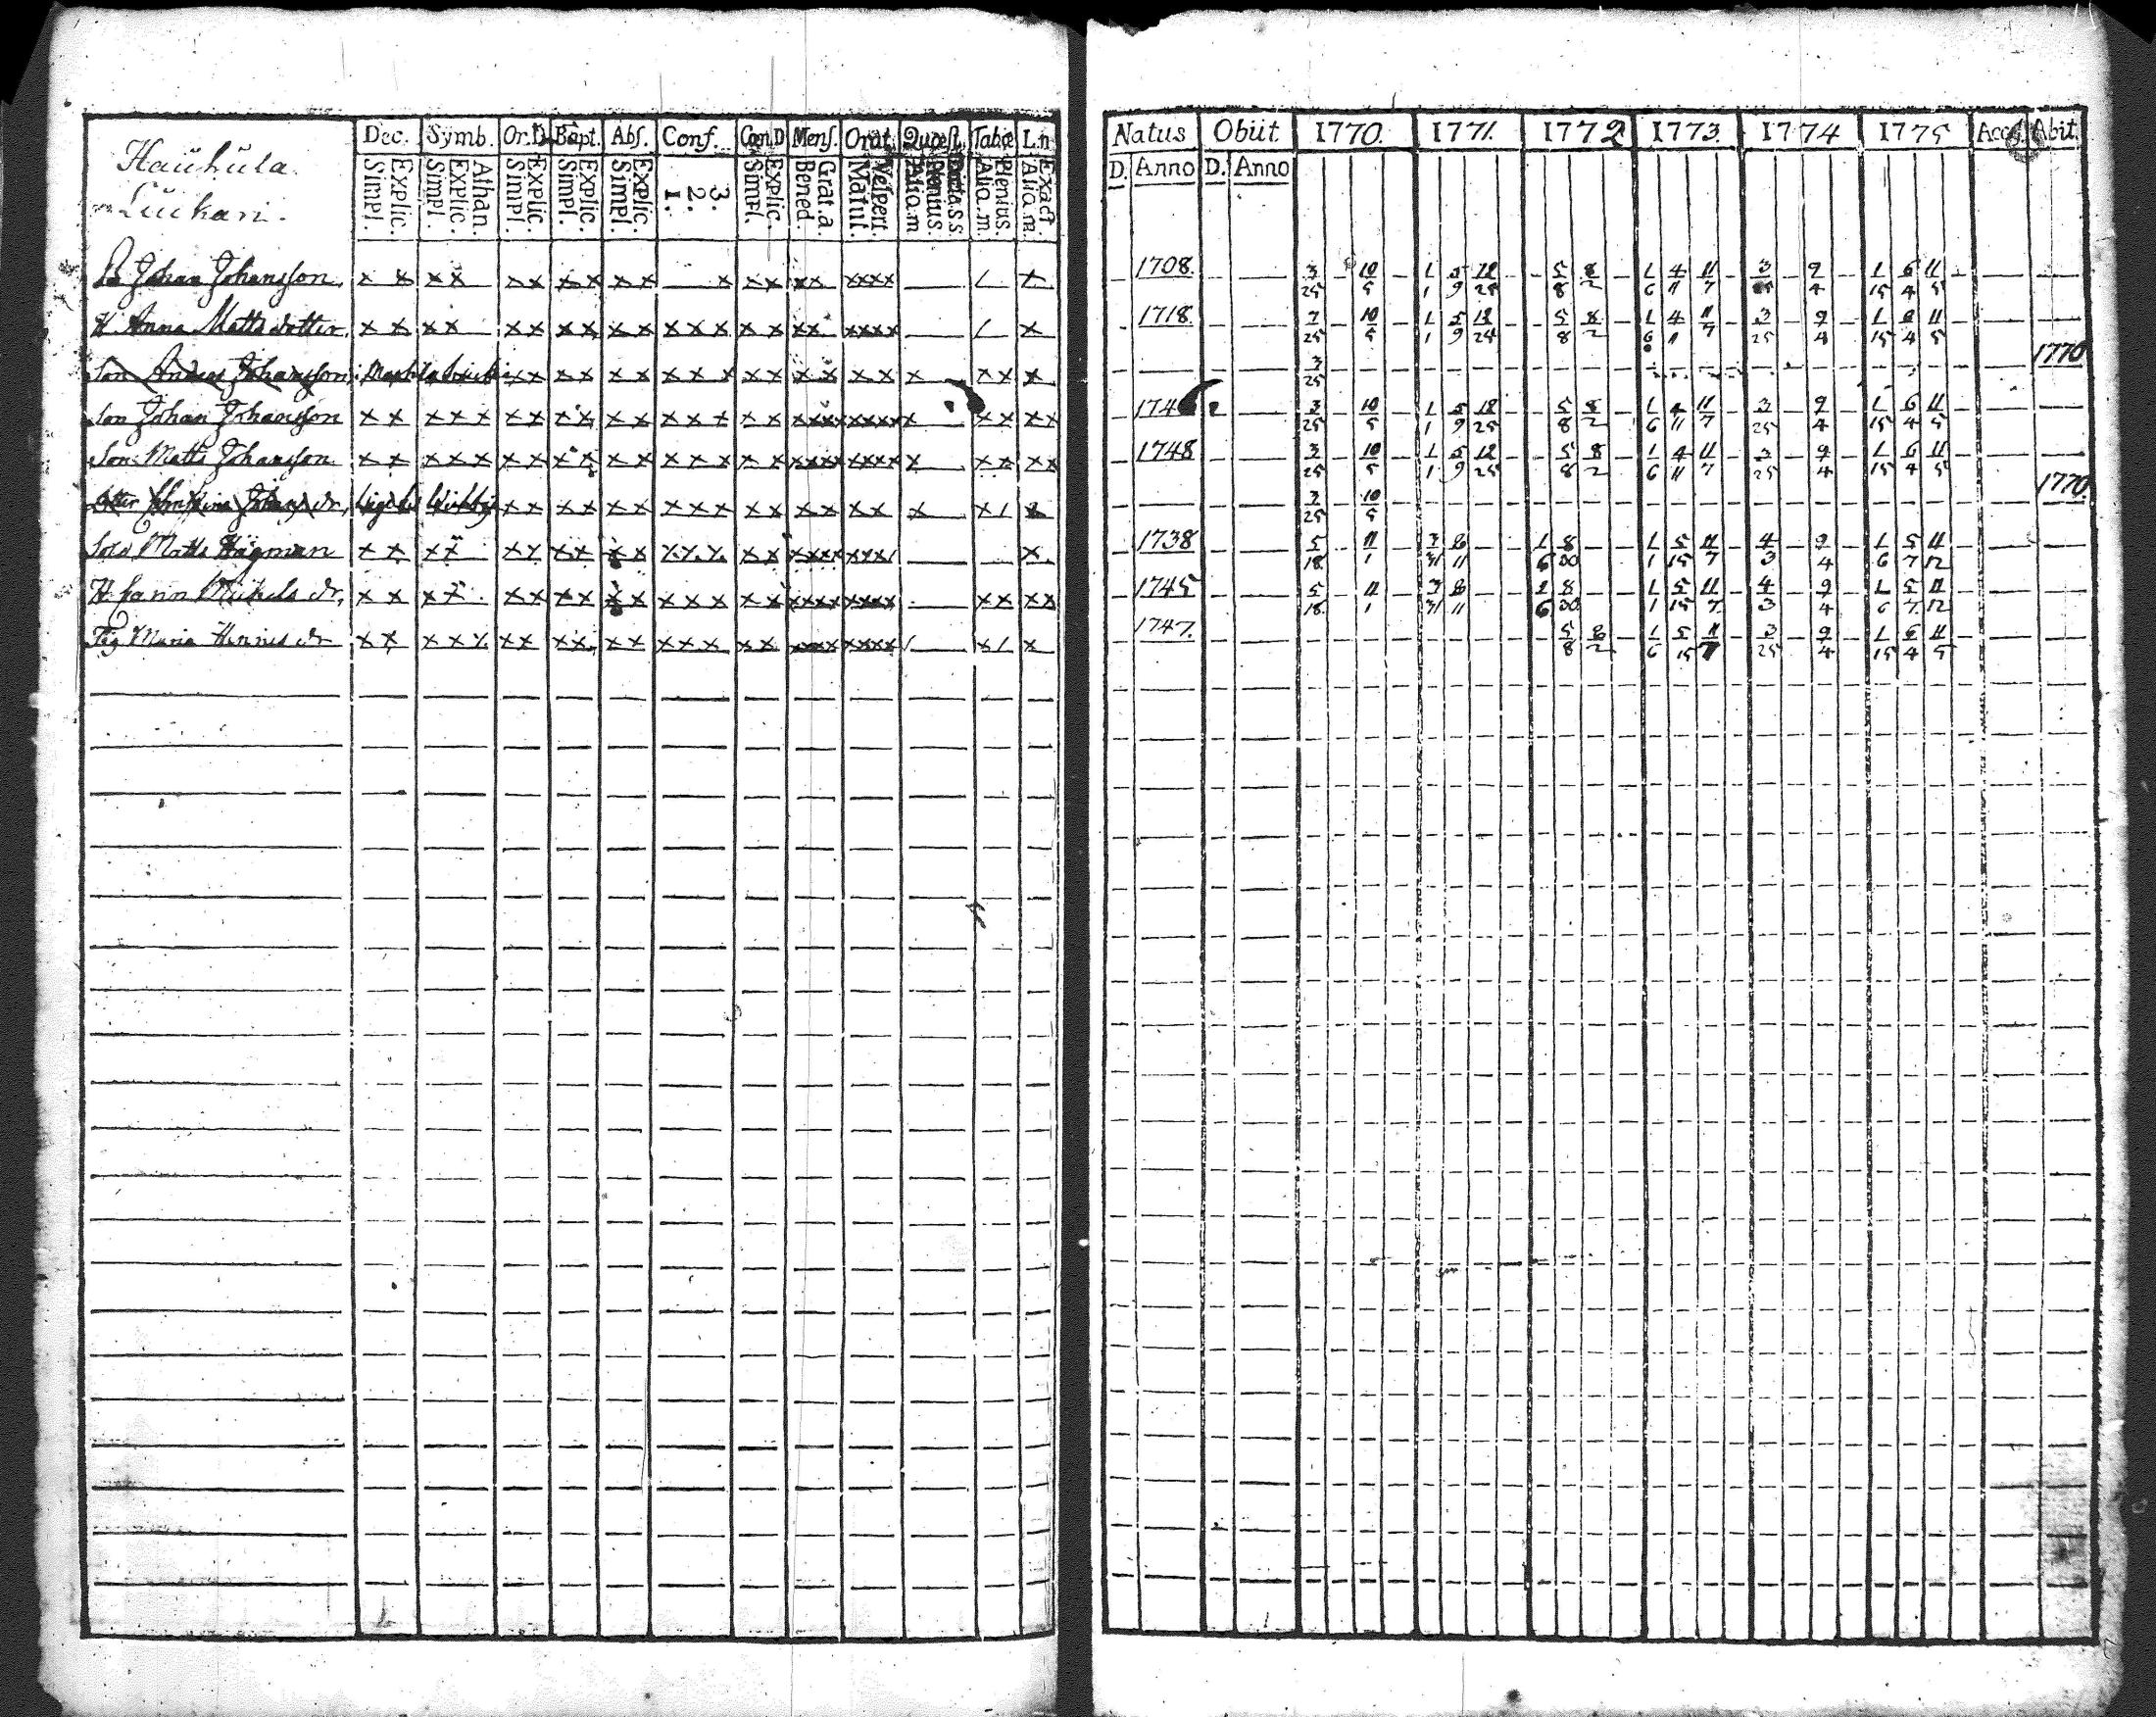 Hauhula
Luckari.
Dec. Symb. Or.D Bapt. Abs. Conf. Cœn.D Mens. Orat. Quæst. Tabæ L.n
Simpl. Explic. Simpl. Explic. Athan. Simpl. Explic. Simpl. Explic. Simpl. Explic. 1. 2. 3. Simpl. Explic. Bened. Grat.a Matut. Vespert. Alia.m Plenius. Alia.m. Plenius. Alia.m. Exact.
Natus Obiit 1770. 1771. 1772 1773. 1774 1775 Acc. Abit.
D. Anno D. Anno
Johan Johansson. x x x x x x x x x x x x x x x xxxx / x 1708. 3/25 10/5 1/1 5/9 12/25 5/8 8/2 1/6 4/11 11/7 3/25 9/4 1/15 6/4 11/5
H Anna Matts dotter. x x x x x x x x x x x x x x x x x xxxx / x 1718. 10/5 1/1 5/9 12/25 5/8 8/2 1/6 4/11 11/7 3/25 9/4 1/15 6/4 11/5
Son Anders Johansson x x x x x x x x x x x x x x x x x x x x 3/25 1770
Son Johan Johansson x x x x x x x x x x x x x x x x xxxx xxxx x x x x x 174 3/25 10/5 1/1 5/9 12/25 5/8 8/2 1/6 4/11 11/7 3/25 9/4 1/15 6/4 11/5
Son Matts Johansson x x x x x x x x x x x x x x x x xxxx xxxx x x x x x 1748 3/25 10/5 1/1 5/9 12/25 5/8 8/2 1/6 4/11 11/7 3/25 9/4 1/15 6/4 11/5
x x x x x x x x x x x x x x x x / 3/25 10/5 1770.
Sold Matts Hägman x x x x x x x x x x x x x x x xxxx xxxx x 1738 5/18 11/1 3/31 8/11 1/6 8/30 1/1 5/15 11/7 4/3 9/4 1/6 5/7 11/12
H Carin Mickels dr, x x x x x x x x x x x x x x x xxxx xxxx x x x x 1745 5/18 11/1 3/31 8/11 8/30 1/1 5/15 11/7 4/3 9/4 1/6 5/7 11/12
Pig Maria Hinrics dr x x x x x x x x x x x x x x x x xxxx xxxx / x / x 1747. 5/8 8/2 1/6 5/15 11/7 3/25 9/4 1/15 6/4 11/5